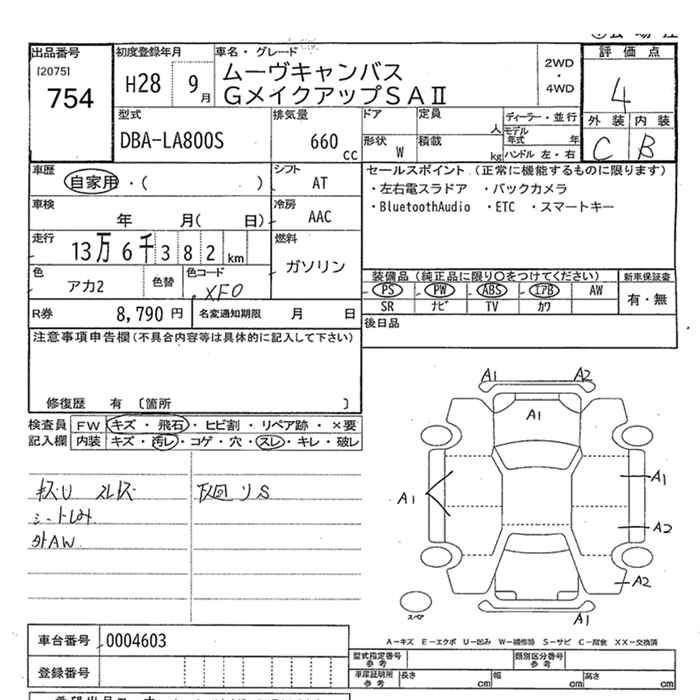 出品番号 初度登録年月 車名・グレード 評価点
[2075]
754
H28 9月
ムーヴキャンバス
GメイクアップSAⅡ
2WD
・
4WD
4
外装 内装
C B
型式 排気量 ドア 定員 人 ディーラー・並行
DBA-LA800S 660cc
モデル年式 年
形状 W 積載 kg ハンドル 左・右
車歴 自家用・( ) シフト AT
セールスポイント(正常に機能するものに限ります)
・左右電スラドア ・バックカメラ
・BluetoothAudio ・ETC ・スマートキー
車検 年 月( 日) 冷房 AAC
走行 13万6千382km 燃料 ガソリン
色 アカ2 色替 色コード XF0
装備品(純正品に限り○をつけてください) 新車保証書
PS PW ABS エアB AW 有・無
SR ナビ TV カワ
R券 8,790円 名変通知期限 月 日
後日品
注意事項申告欄(不具合内容等は具体的に記入して下さい)
修復歴 有 〔箇所 〕
検査員記入欄
FW キズ・飛石・ヒビ割・リペア跡・×要
内装 キズ・汚レ・コゲ・穴・スレ・キレ・破レ
キズU スレキズ
シートしみ
外AW
下廻りS
A1 A2
A1
A1
A1
A2
A2
A1
スペア
A-キズ E-エクボ U-凹み W-補修跡 S-サビ C-腐食 XX-交換済
車台番号 0004603
登録番号
型式指定番号 参考 類別区分番号 参考
車庫証明所 参考 長さ cm 幅 cm 高さ cm